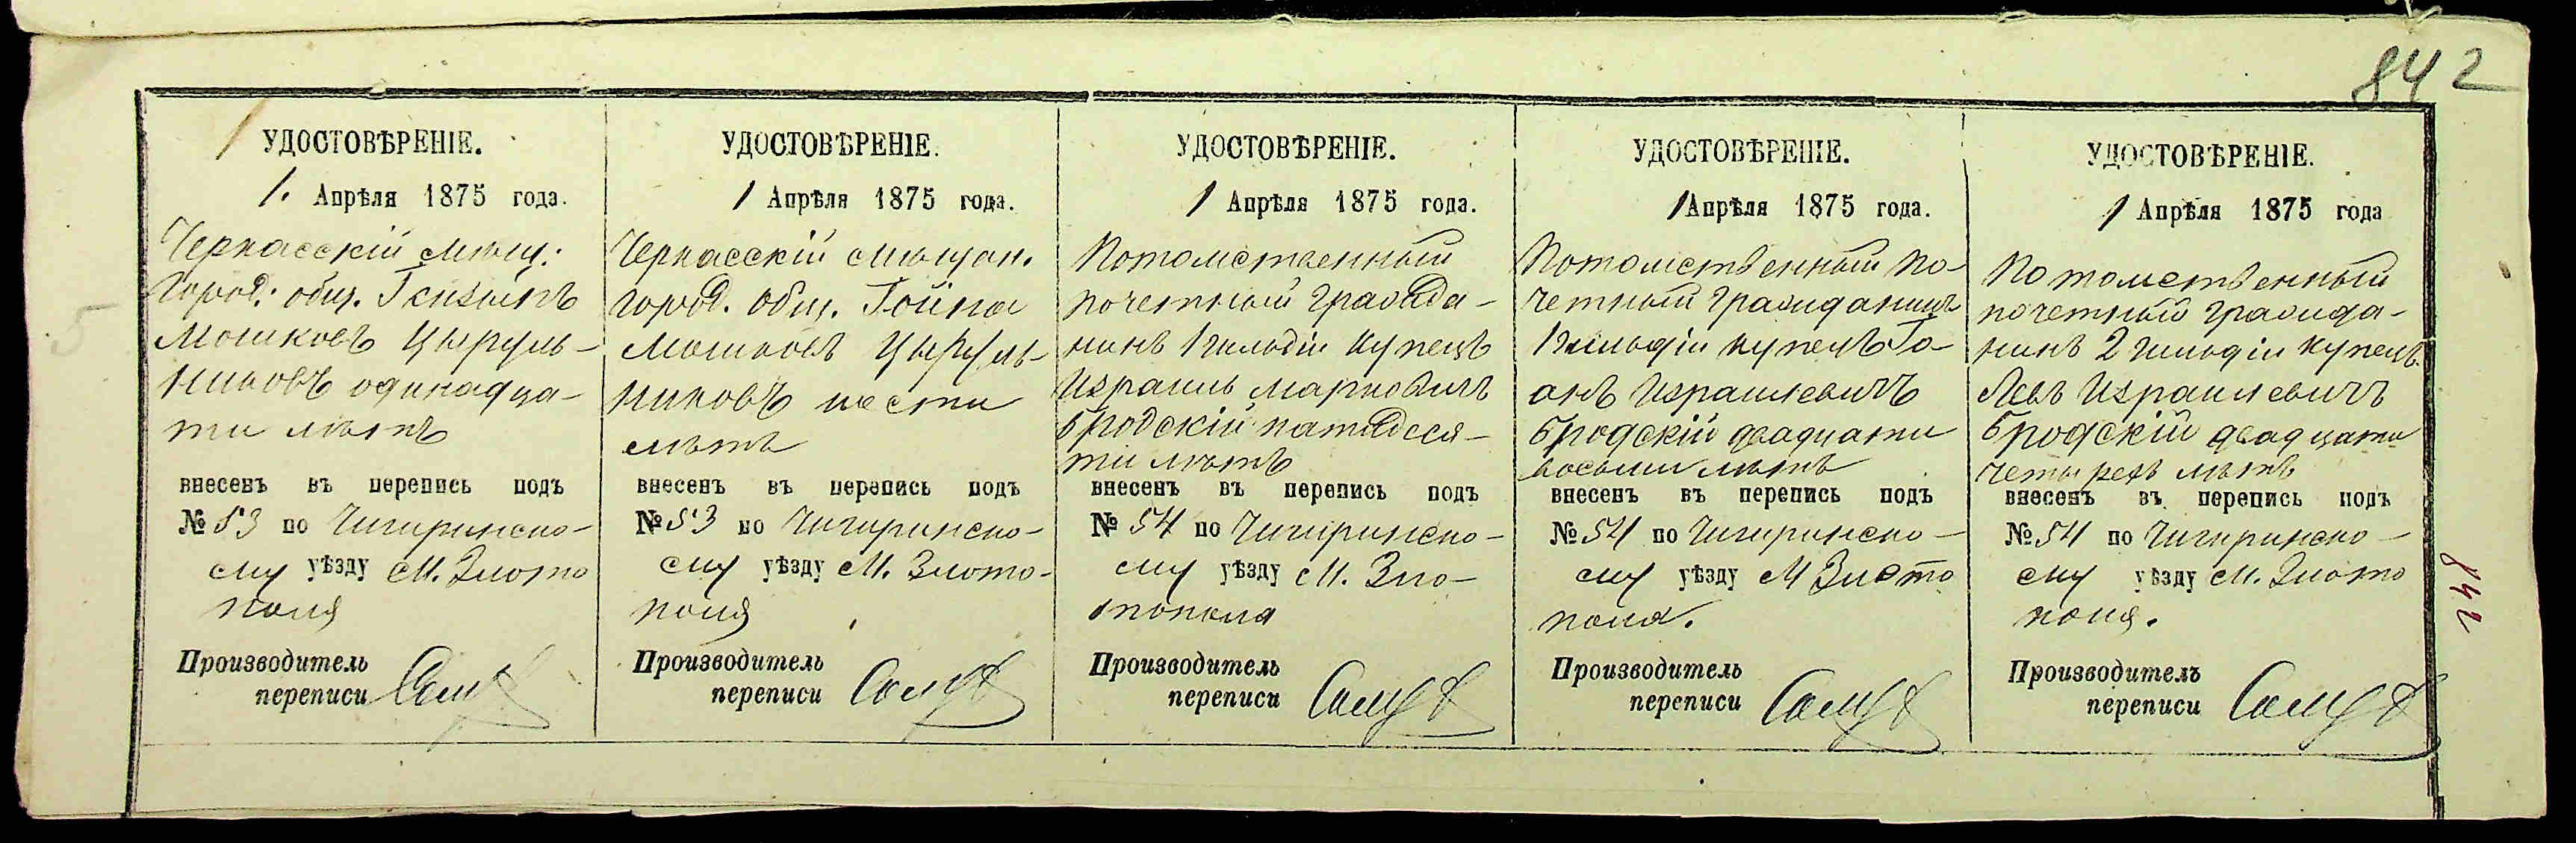 842
УДОСТОВѢРЕНІЕ.
1. Апрѣля 1875 года.
Черкасскій мѣщ.
город. общ.
Мошковъ Цыруль-
никовъ одинадца-
ти лѣтъ
внесенъ въ перепись подъ
№ 53 по Чигиринско-
му уѣзду М. Злото
поля
Производитель
переписи
УДОСТОВѢРЕНІЕ.
1 Апрѣля 1875 года.
Черкасскій мѣщан.
город. общ. Гойна
Мошковъ Цыруль-
никовъ шести
лѣтъ
внесенъ въ перепись подъ
№ 53 по Чигиринско-
му уѣзду М. Злото-
поля
Производитель
переписи
УДОСТОВѢРЕНІЕ.
1 Апрѣля 1875 года.
Потомственный
почетный гражда-
нинъ 1 гильдіи купецъ
Израиль Марковичъ
Бродскій пятидеся-
ти лѣтъ
внесенъ въ перепись подъ
№ 54 по Чигиринско-
му уѣзду М. Зло-
тополя
Производитель
переписи
УДОСТОВѢРЕНІЕ.
1 Апрѣля 1875 года.
Потомственный по-
четный гражданинъ
1 гильдіи купецъ Іо-
анъ Израилевичъ
Бродскій двадцати
восьми лѣтъ
внесенъ въ перепись подъ
№ 54 по Чигиринско-
му уѣзду М Злото
поля.
Производитель
переписи
УДОСТОВѢРЕНІЕ.
1 Апрѣля 1875 года
Потомственный
почетный гражда-
нинъ 2 гильдіи купецъ
Левъ Израилевичъ
Бродскій двадцати
четырехъ лѣтъ
внесенъ въ перепись подъ
№ 54 по Чигиринско-
му уѣзду М. Злото
поля.
Производитель
переписи
842